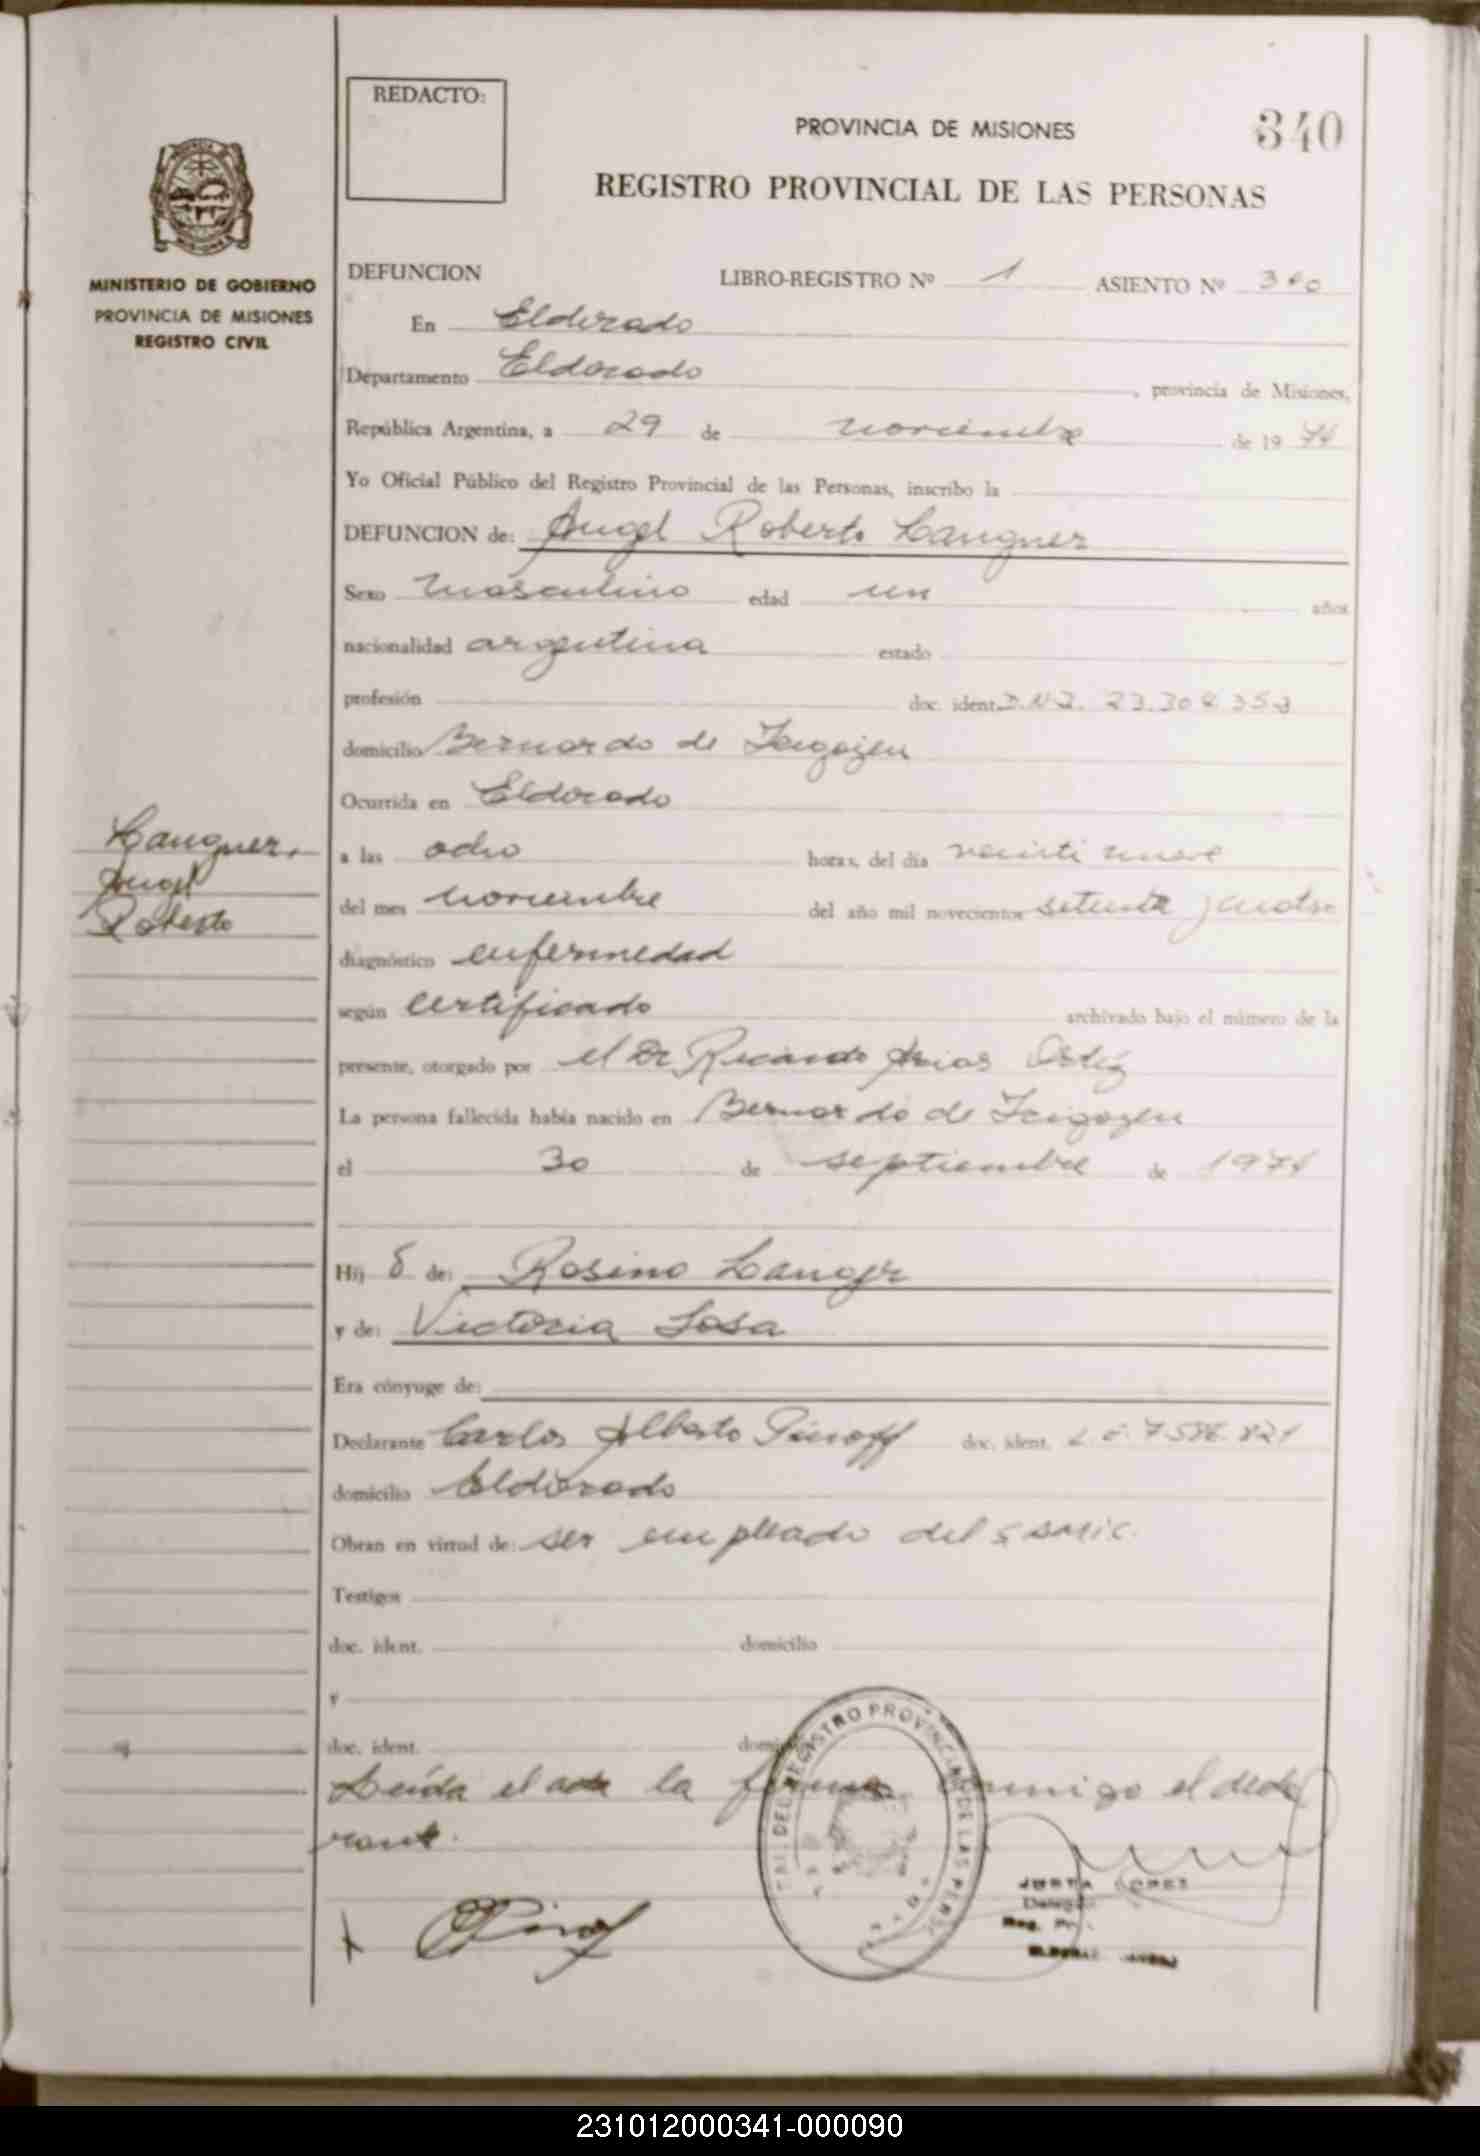 REDACTO:
PROVINCIA DE MISIONES
340
REGISTRO PROVINCIAL DE LAS PERSONAS
MINISTERIO DE GOBIERNO
PROVINCIA DE MISIONES
REGISTRO CIVIL
DEFUNCION LIBRO-REGISTRO Nº 1 ASIENTO Nº 340
En Eldorado
Departamento Eldorado, provincia de Misiones,
República Argentina, a 29 de noviembre de 1974
Yo Oficial Público del Registro Provincial de las Personas, inscribo la
DEFUNCION de: Angel Roberto Langner
Sexo masculino edad un años
nacionalidad argentina estado
profesión doc. ident. D.N.I.
domicilio Bernardo de Irigoyen
Ocurrida en Eldorado
Langner,
Angel
Roberto
a las ocho horas, del día veinti nueve
del mes noviembre del año mil novecientos setenta y cuatro
diagnóstico enfermedad
según certificado archivado bajo el número de la
presente, otorgado por el Dr Ricardo Arias Ortiz
La persona fallecida había nacido en Bernardo de Irigoyen
el 30 de septiembre de
Hij o de: Rosino Langer
y de: Victoria Sosa
Era cónyuge de:
Declarante Carlos Alberto Pinoff doc. ident.
domicilio Eldorado
Obran en virtud de: ser empleado del
Testigos
doc. ident. domicilio
y
doc. ident.
Leída el acta la firma conmigo el decla
rante.
DEL REGISTRO PROVINCIAL DE LAS PERSO
JUSTA LOPEZ
Delegada
231012000341-000090